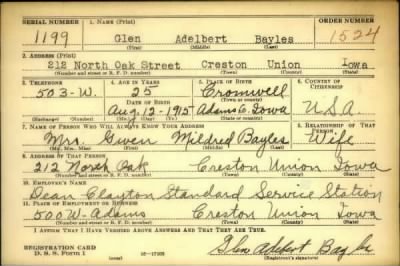 SERIAL NUMBER 1. NAME (Print) ORDER NUMBER
1199 Glen Adelbert Bayles 1524
(First) (Middle) (Last)
2. ADDRESS (Print)
212 North Oak Street Creston Union Iowa
(Number and street or R. F. D. number) (Town) (County) (State)
3. TELEPHONE 4. AGE IN YEARS 5. PLACE OF BIRTH 6. COUNTRY OF CITIZENSHIP
503-W. 25 Cromwell
DATE OF BIRTH (Town or county)
Aug. 12-1915 Adams Co. Iowa U.S.A.
(Exchange) (Number) (Mo.) (Day) (Yr.) (State or country)
7. NAME OF PERSON WHO WILL ALWAYS KNOW YOUR ADDRESS RELATIONSHIP OF THAT PERSON
Mrs. Gwen Mildred Bayles Wife
(Mr., Mrs., Miss) (First) (Middle) (Last)
8. ADDRESS OF THAT PERSON
212 North Oak Creston Union Iowa
(Number and street or R. F. D. number) (Town) (County) (State)
10. EMPLOYER'S NAME
Dean Clayton Standard Service Station
11. PLACE OF EMPLOYMENT OR BUSINESS
500 W-Adams Creston Union Iowa
(Number and street or R. F. D. number) (Town) (County) (State)
I AFFIRM THAT I HAVE VERIFIED ABOVE ANSWERS AND THAT THEY ARE TRUE.
REGISTRATION CARD
D. S. S. Form 1 Glen Adelbert Bayles
(Registrant's signature)